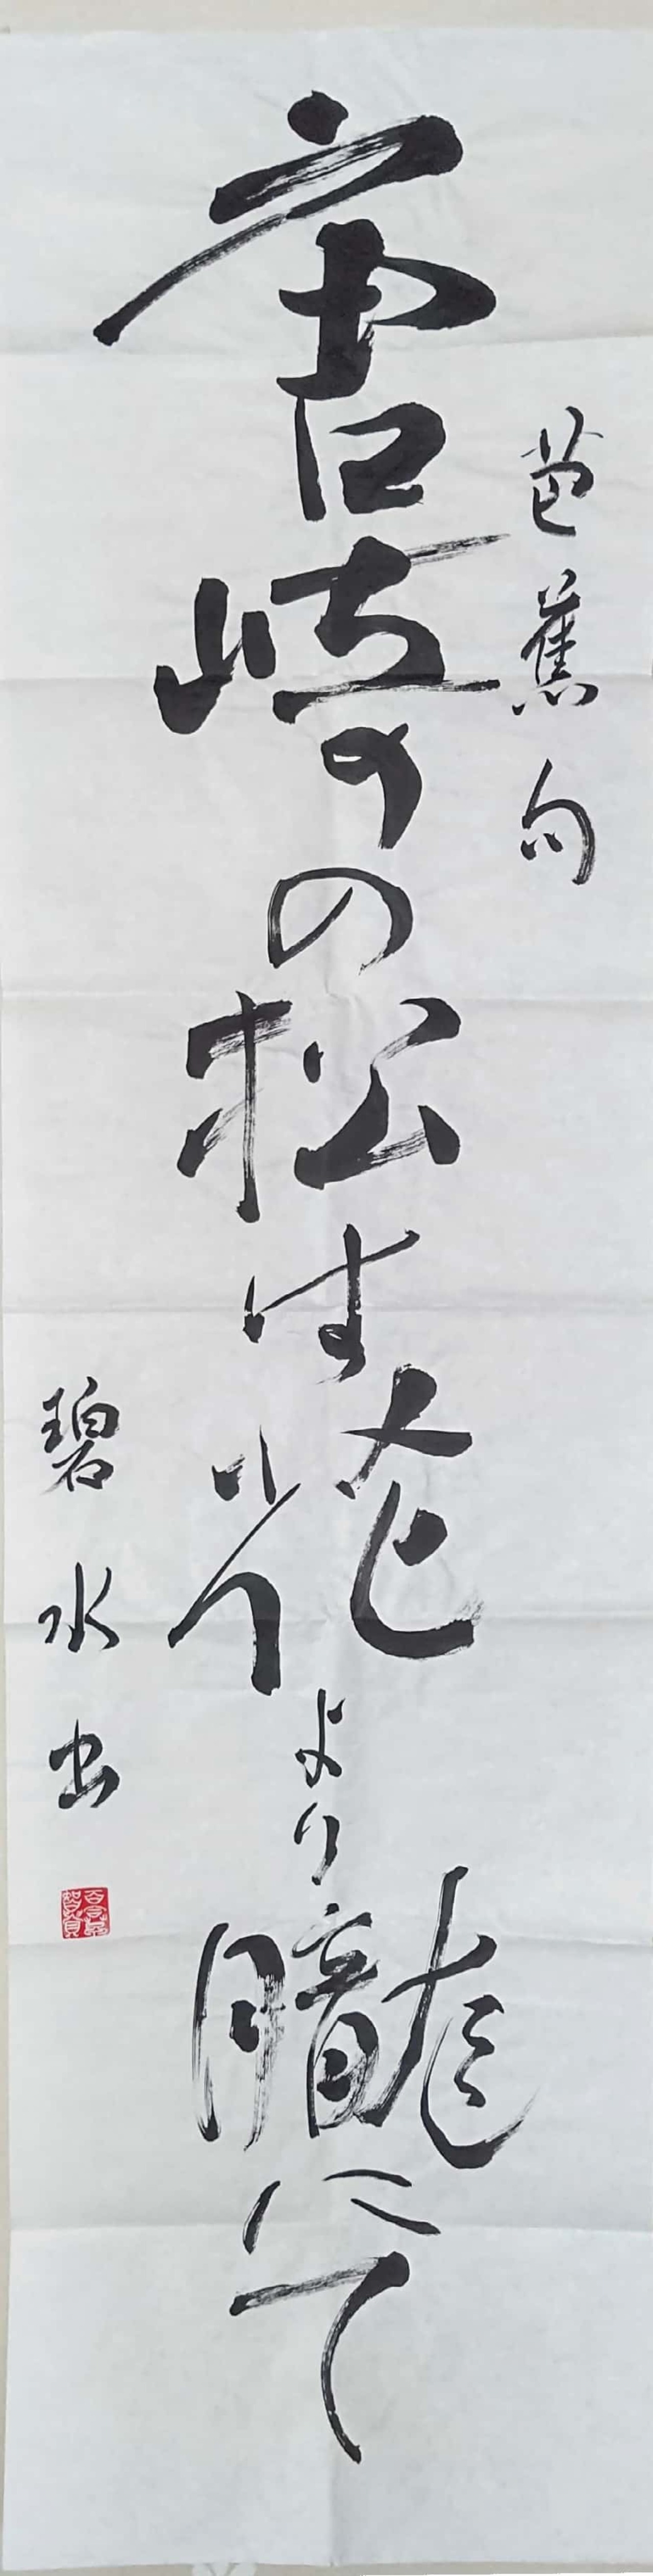 芭蕉句
唐﨑の松は花より朧にて
碧水書